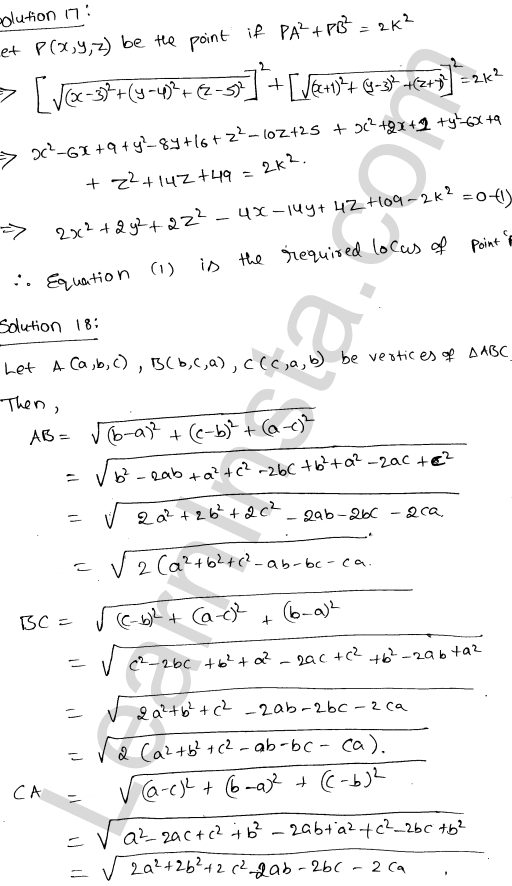 olution 17:
et P(x,y,z) be the point if PA² + PB² = 2K²
⇒ [√(x-3)²+(y-4)²+(z-5)²]² + [√(x+1)²+(y-3)²+(z+7)²]² = 2K²
⇒ x²-6x+9+y²-8y+16+z²-10z+25 + x²+2x+1+y²-6y+9
+ z²+14z+49 = 2K².
⇒ 2x²+2y²+2z² - 4x - 14y + 4z + 109 - 2K² = 0 -(1)
∴ Equation (1) is the required locus of point
Solution 18:
Let A(a,b,c), B(b,c,a), C(c,a,b) be vertices of △ABC.
Then,
AB = √(b-a)² + (c-b)² + (a-c)²
= √b² - 2ab + a² + c² - 2bc + b² + a² - 2ac + c²
= √2a² + 2b² + 2c² - 2ab - 2bc - 2ca
= √2(a²+b²+c²-ab-bc-ca.
BC = √(c-b)² + (a-c)² + (b-a)²
= √c²-2bc+b²+a²-2ac+c²+b²-2ab+a²
= √2a²+b²+c² -2ab-2bc-2ca
= √2(a²+b²+c²-ab-bc-ca).
CA = √(a-c)² + (b-a)² + (c-b)²
= √a²-2ac+c²+b²-2ab+a²+c²-2bc+b²
= √2a²+2b²+2c²-2ab-2bc-2ca.
LearnInsta.com